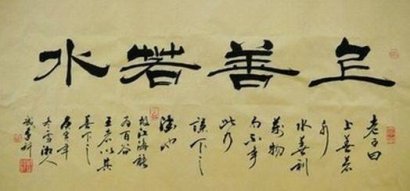 上善若水
老子曰
上善若
水
水善利
萬物
而不爭
此乃
謙下之
德也
故江海能
為百谷
王者以其
善下之